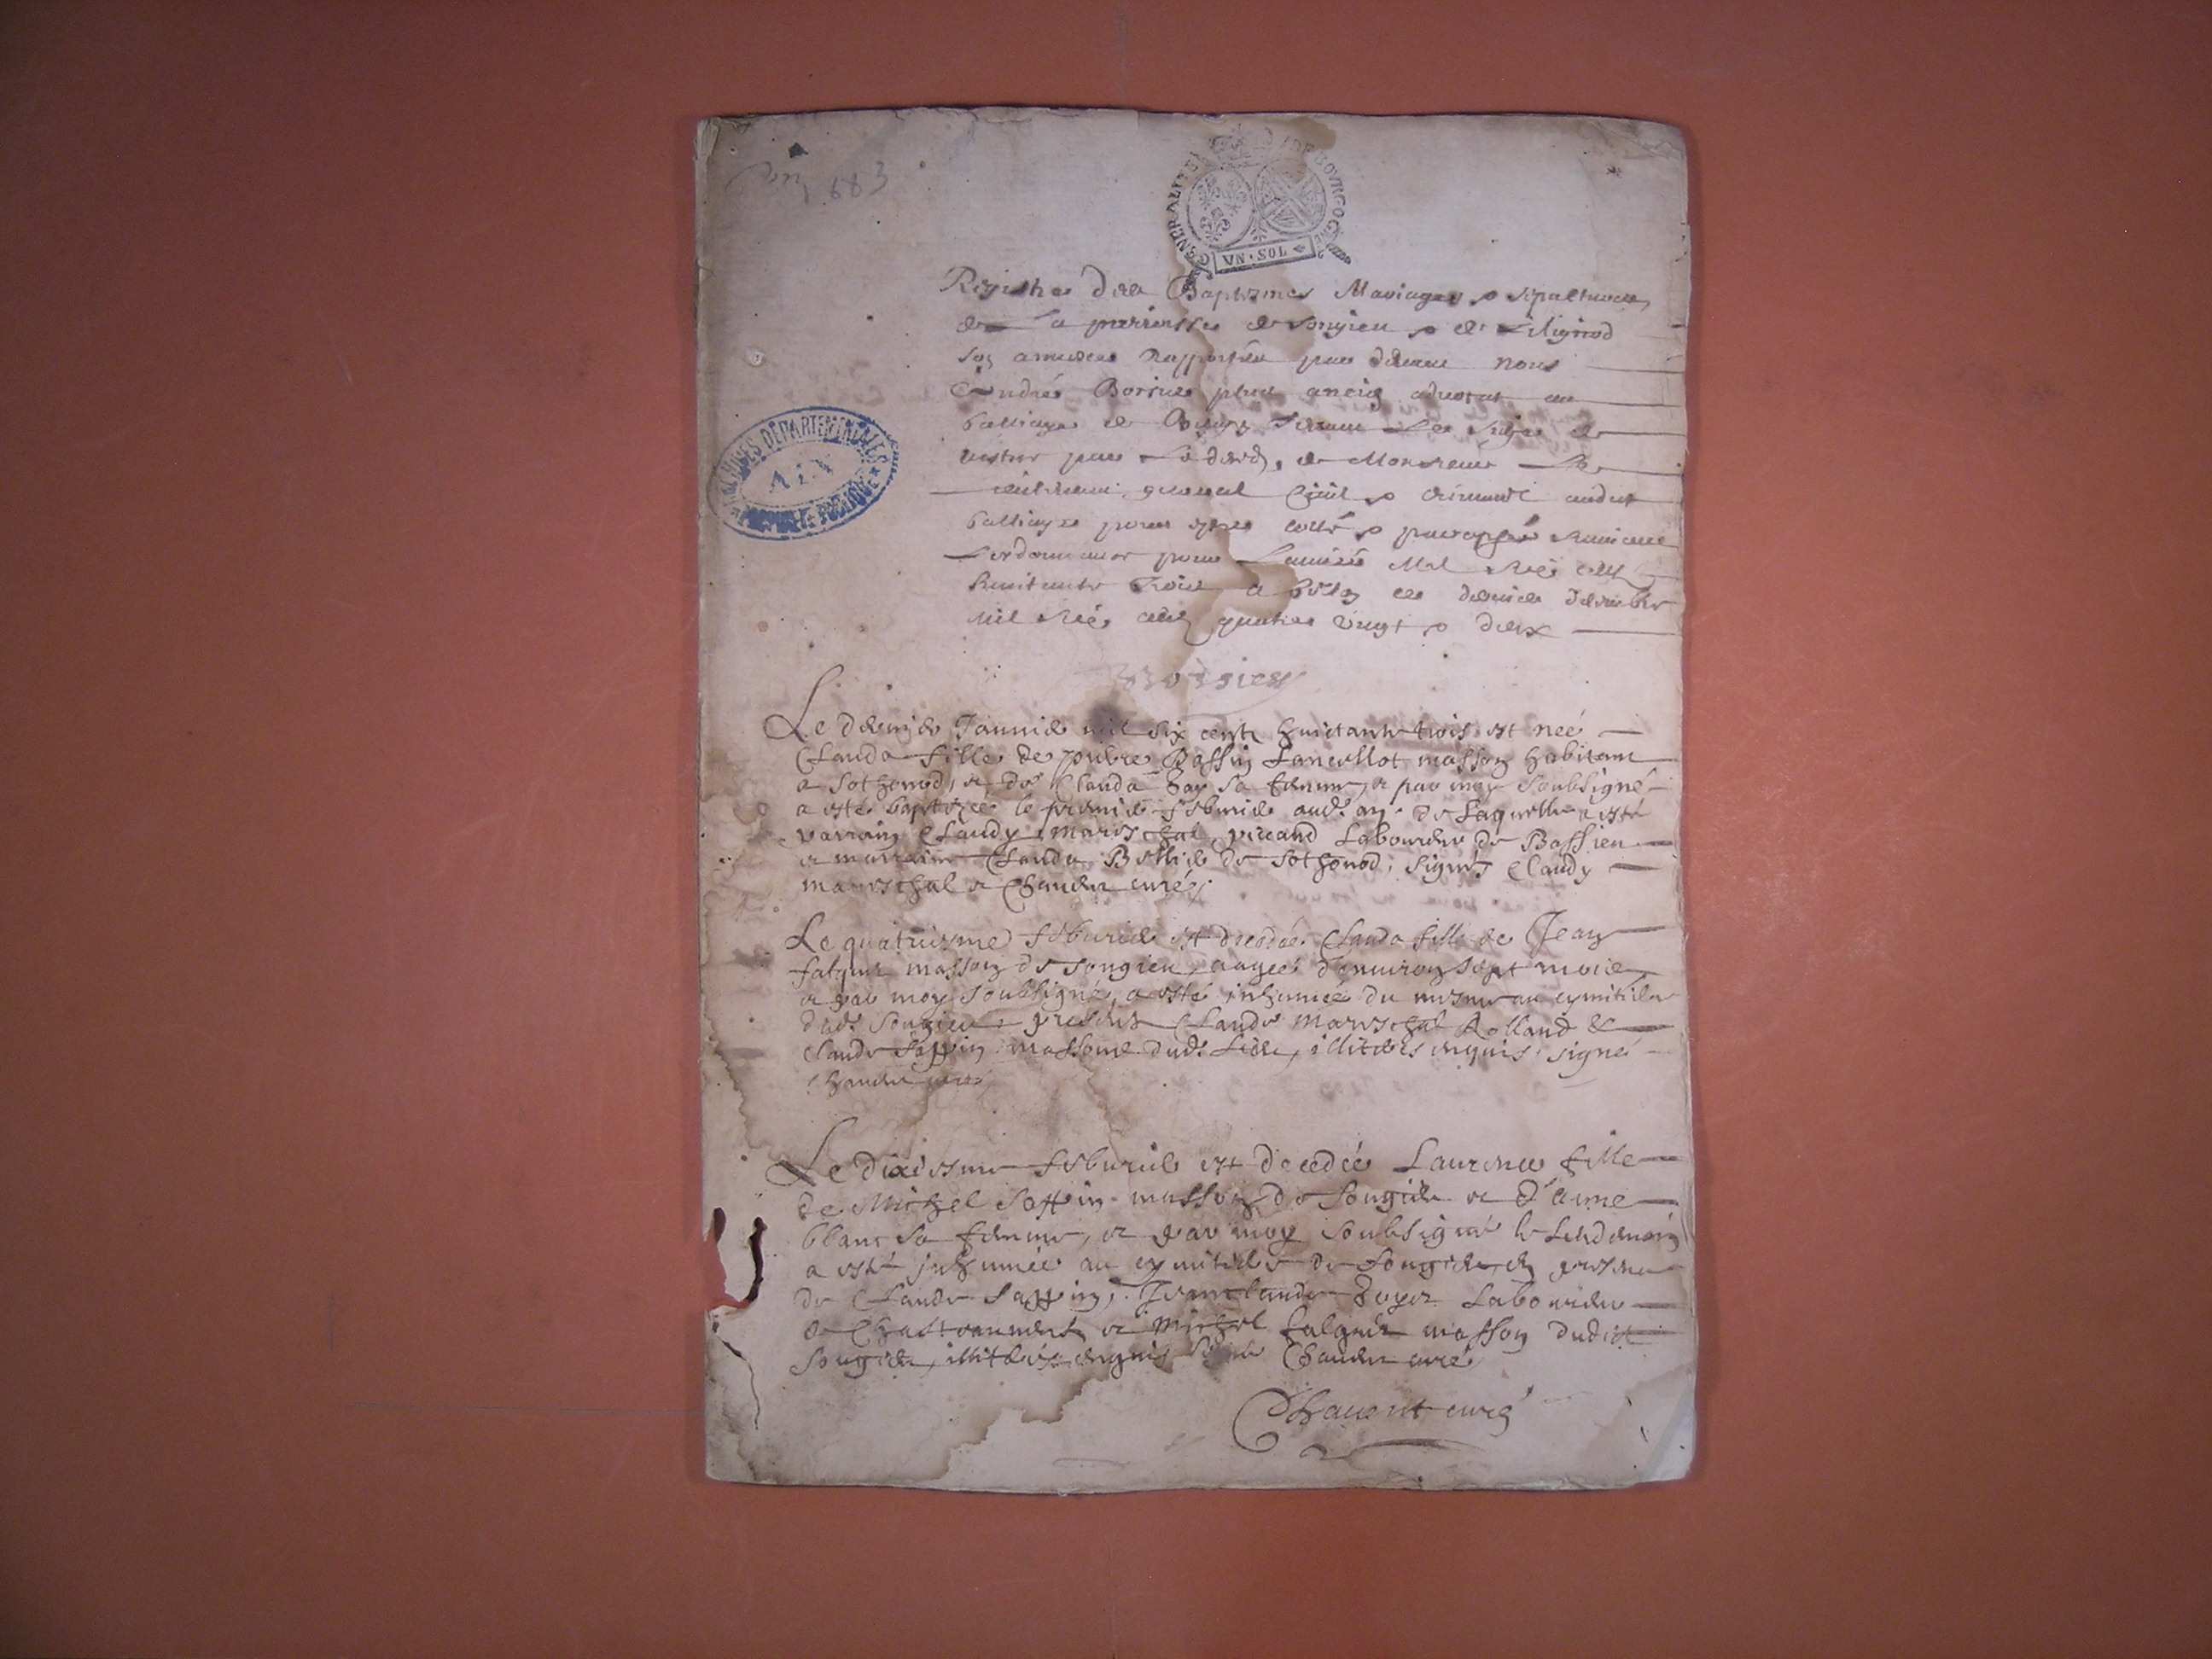 683
GENERALITE DE BOVRGOGNE
VN · SOL
Registre des Baptesmes Mariages et sépultures
de la parroisse de Songieu et de Lilignod
son annexe Rapportés par devant nous
André plus ancien advocat au
balliage de
par de Monsieur Le
general Civil et criminel audict
balliage pour estre cotté et paraphé suivant
Lordonnance pour Lannée Mil six cent
huictante trois a belley ce dernier decembre
mil six cent quatre vingt et deux
ARCHIVES DEPARTEMENTALES
AIN
Le dernier Januier mil six cents huictante trois est neé
Clauda fille de Bassin Lancellot masson habitant
a Sothonod, et de Clauda Gay sa femme, et par moy soubsigné
a esté baptizeé le premier feburier aud. an. de Laquelle a esté
parrain Claudy Mareschal Laboureur de Bassieu
et marraine Clauda de Sothonod; signéz Claudy
mareschal et Chauent curéz.
Le quatriesme feburier est decedée Clauda fille de Jean
falquet masson de Songieu, aageé d'enuiron sept mois,
et par moy soubsigné, a esté inhumeé du mesme au cymitiere
dud. Songieu, presents Claude Mareschal Rolland &
Claude Sappin massons dud. Lieu, illiterés enquis. signé
Chauent curé
Le dixiesme feburier est decedée Laurence fille
de Michel Sappin masson de Songieu et d'Aime
blanc sa femme, et par moy soubsigné le Lendemain
a esté inhumée au cymitiere de Songieu en presence
de Claude Sappin, Jeanclaude Laboureur
de et Michel falquet masson dudict
Songieu, illiterés enquis signé Chauent curé
Chauent curé